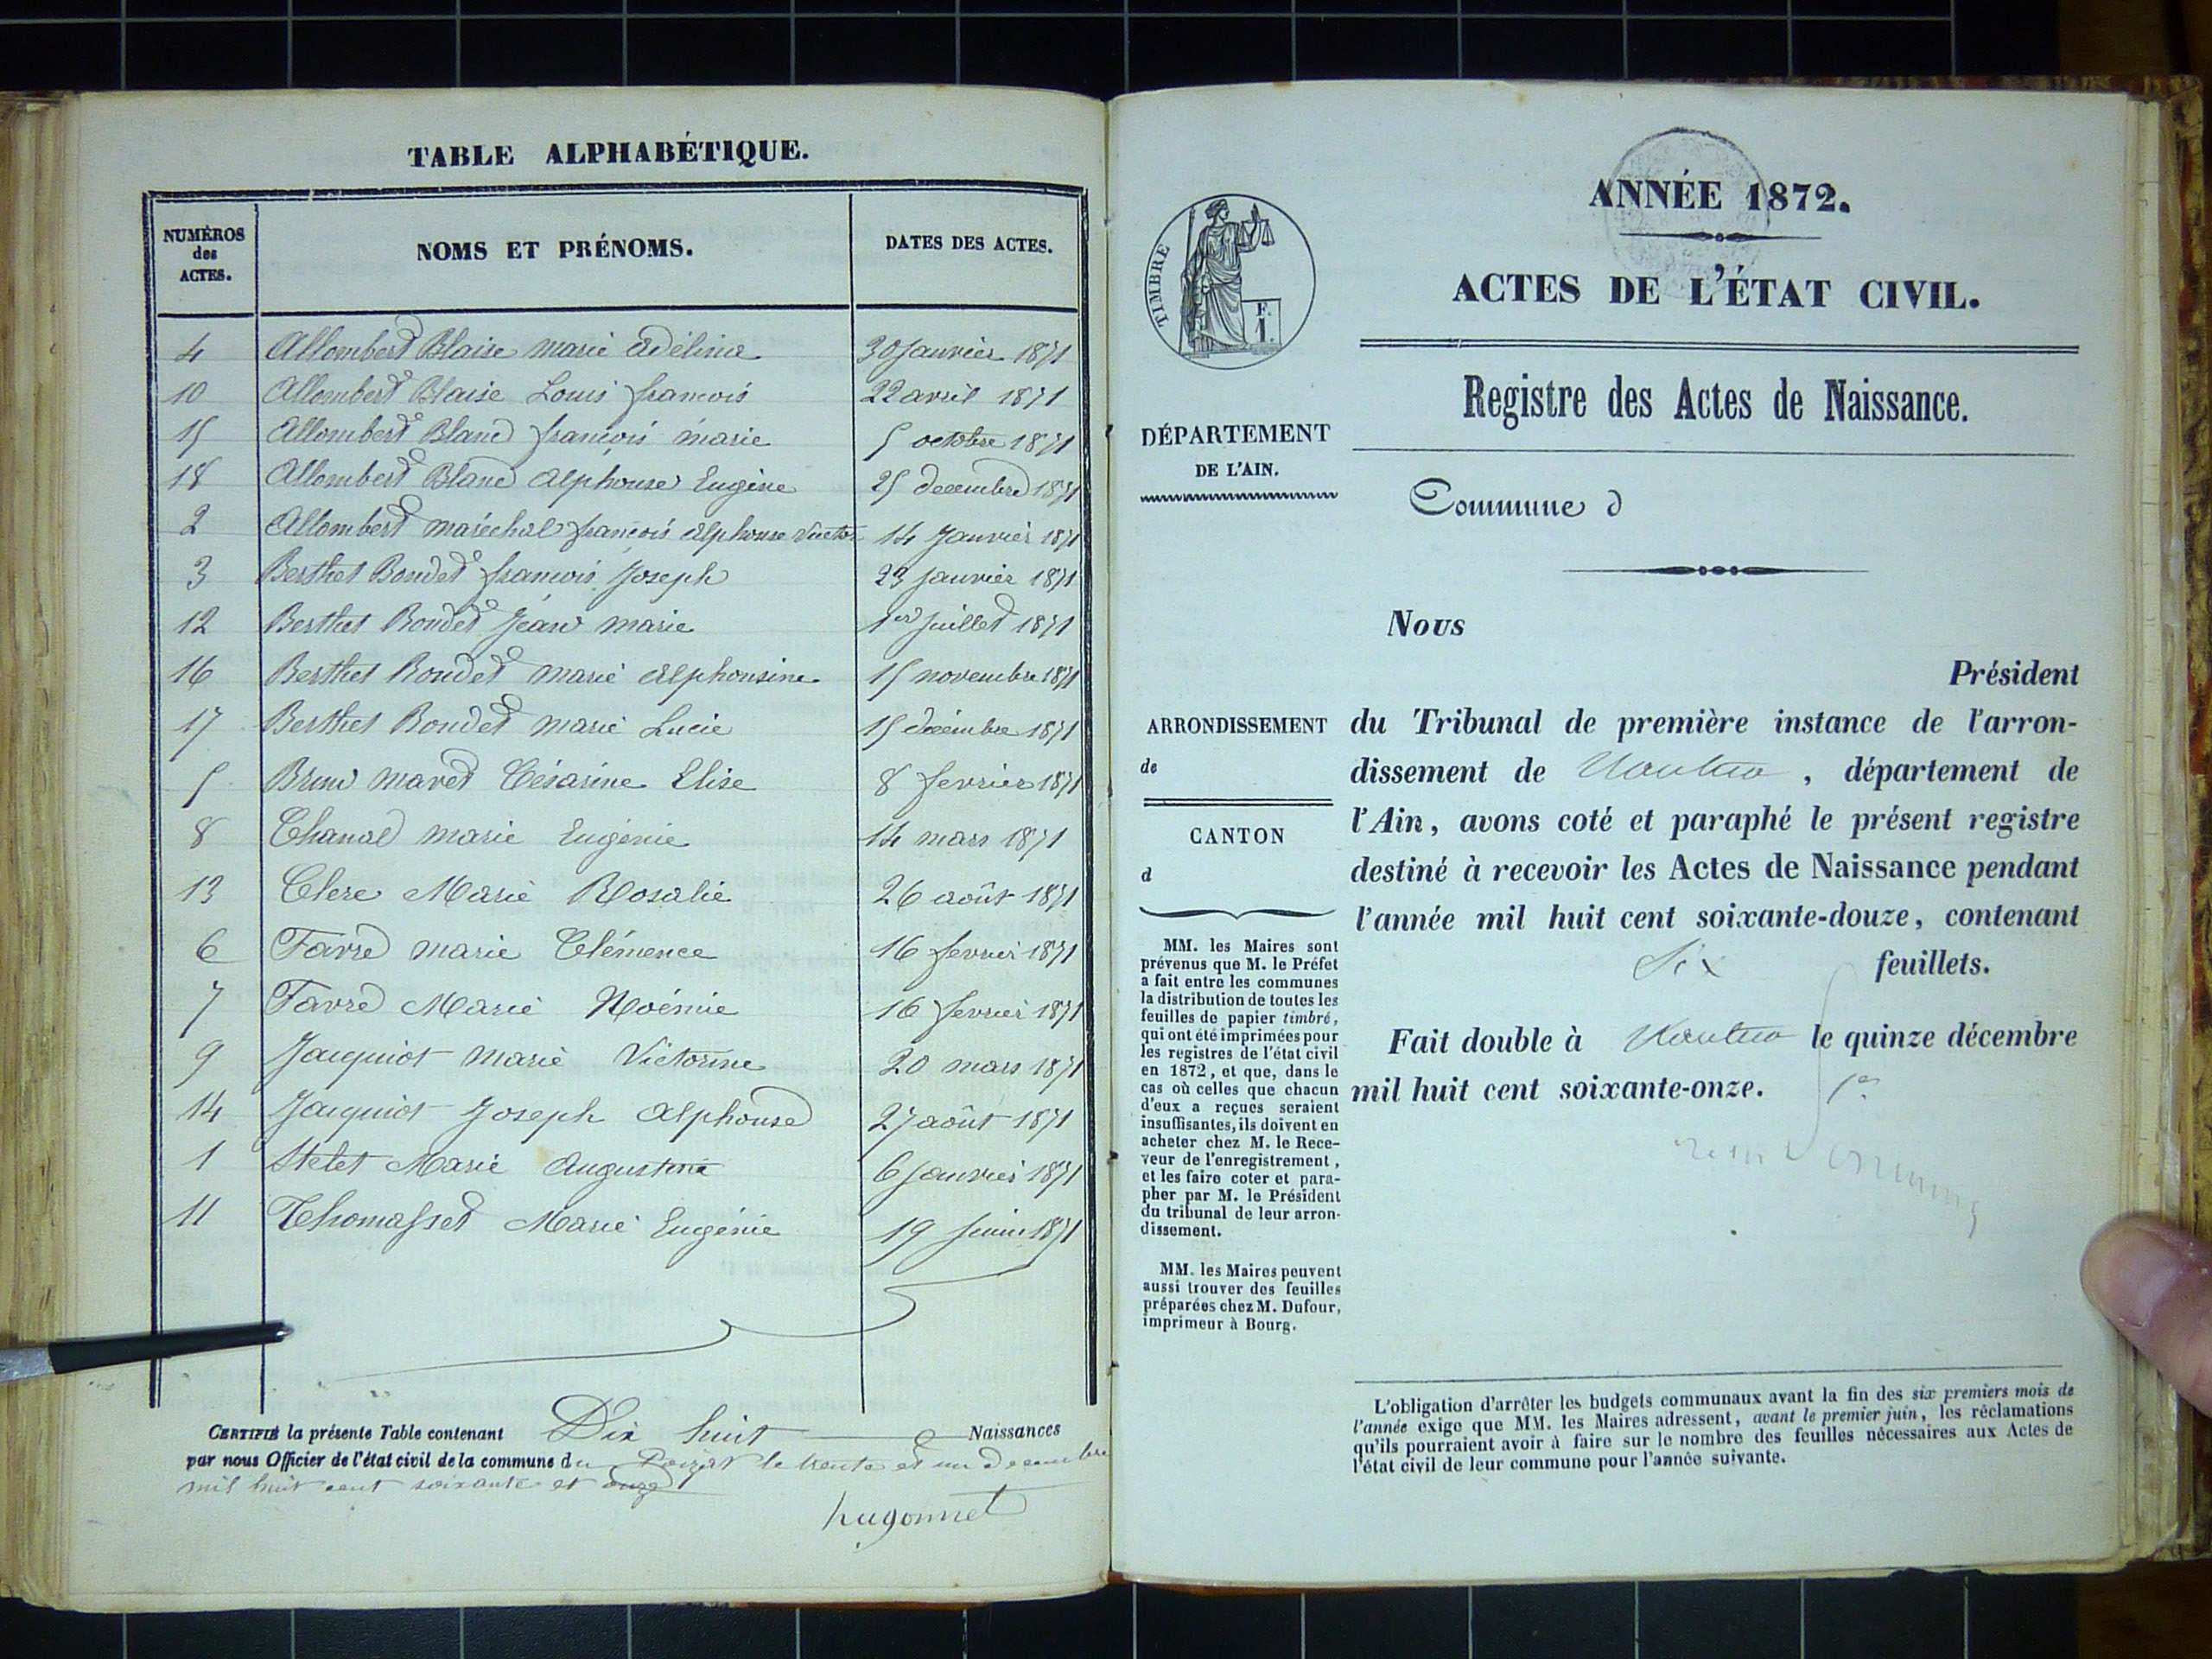 TABLE ALPHABÉTIQUE.
NUMÉROS des ACTES.
NOMS ET PRÉNOMS.
DATES DES ACTES.
4 Allombert Blaise marie adéline 30 Janvier 1871
10 Allombert Blaise Louis francois 22 avril 1871
15 Allombert Blanc françois marie 5 octobre 1871
18 Allombert Blanc alphonse Eugène 25 decembre 1871
2 Allombert maréchal françois alphonse Victor 14 Janvier 1871
3 Berthet Bondet francois Joseph 23 janvier 1871
12 Berthet Bondet Jean marie 1er Juillet 1871
16 Berthet Bondet marie alphonsine 15 novembre 1871
17 Berthet Bondet marie Lucie 15 décembre 1871
5 Brun mavet Césarine Elise 8 fevrier 1871
8 Chanal marie Eugénie 14 mars 1871
13 Clerc Marie Rosalie 26 août 1871
6 Favre marie Clémence 16 fevrier 1871
7 Favre Marie Noémie 16 fevrier 1871
9 Jacquiot marie Victorine 20 mars 1871
14 Jacquiot Joseph alphonse 27 août 1871
1 Stelet Marie augustine 6 janvier 1871
11 Thomasset Marie Eugénie 19 Juin 1871
CERTIFIÉ la présente Table contenant Dix huit Naissances
par nous Officier de l'état civil de la commune du Poizat le trente et un decembre
mil huit cent soixante et onze
hugonnet
ANNÉE 1872.
ACTES DE L'ÉTAT CIVIL.
TIMBRE
F. 1.
Registre des Actes de Naissance.
DÉPARTEMENT
DE L'AIN.
Commune d
Nous
Président
ARRONDISSEMENT
de
CANTON
d
du Tribunal de première instance de l'arron-
dissement de Nantua , département de
l'Ain, avons coté et paraphé le présent registre
destiné à recevoir les Actes de Naissance pendant
l'année mil huit cent soixante-douze, contenant
Six feuillets.
Fait double à Nantua le quinze décembre
mil huit cent soixante-onze.
MM. les Maires sont
prévenus que M. le Préfet
a fait entre les communes
la distribution de toutes les
feuilles de papier timbré,
qui ont été imprimées pour
les registres de l'état civil
en 1872, et que, dans le
cas où celles que chacun
d'eux a reçues seraient
insuffisantes, ils doivent en
acheter chez M. le Rece-
veur de l'enregistrement,
et les faire coter et para-
pher par M. le Président
du tribunal de leur arron-
dissement.
MM. les Maires peuvent
aussi trouver des feuilles
préparées chez M. Dufour,
imprimeur à Bourg.
L'obligation d'arrêter les budgets communaux avant la fin des six premiers mois de
l'année exige que MM. les Maires adressent, avant le premier juin, les réclamations
qu'ils pourraient avoir à faire sur le nombre des feuilles nécessaires aux Actes de
l'état civil de leur commune pour l'année suivante.